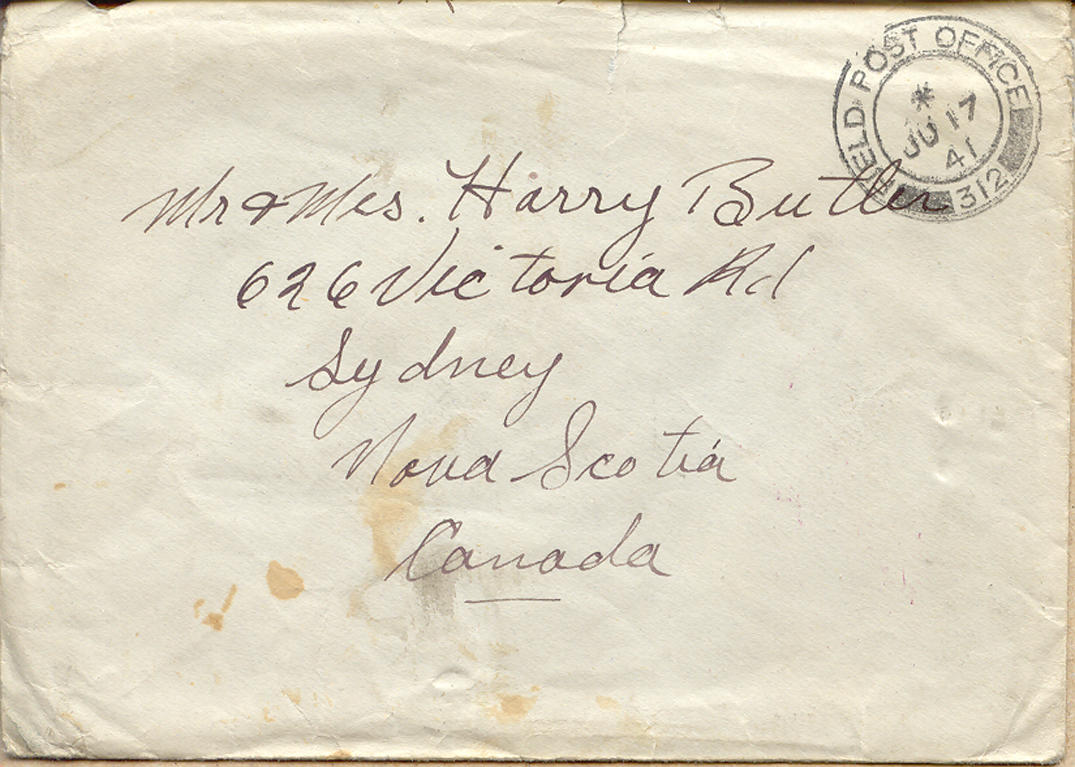 FIELD POST OFFICE
*
JU 17
41
312
Mr & Mrs. Harry Butler
626 Victoria Rd
Sydney
Nova Scotia
Canada